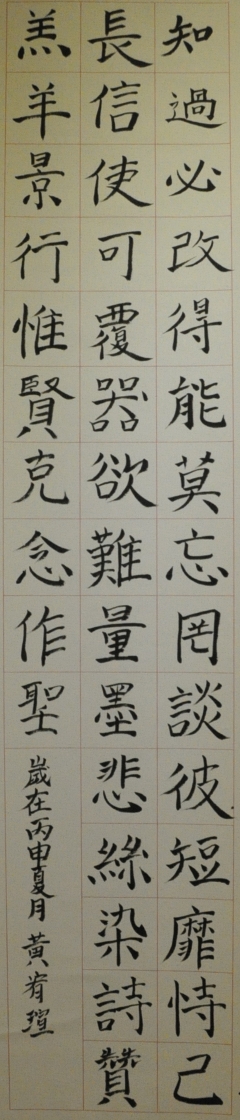 知過必改得能莫忘罔談彼短靡恃己
長信使可覆器欲難量墨悲絲染詩贊
羔羊景行惟賢克念作聖
歲在丙申夏月 黃宥瑄